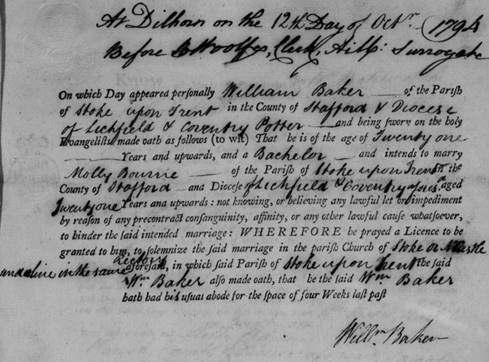 At Dilhorn on the 12th Day of Octr. 1794
Before B Woolfe, Clerk, Surrogate
On which Day appeared personally William Baker of the Parish
of Stoke upon Trent in the County of Stafford & Diocese
of Lichfield & Coventry Potter and being sworn on the holy
Evangelists made oath as follows (to wit) That he is of the age of Twenty one
Years and upwards, and a Bachelor and intends to marry
Molly Bourne of the Parish of Stoke upon Trent in the
County of Stafford and Diocese of Lichfield & Coventry aged
Twenty one Years and upwards: not knowing, or believing any lawful let or impediment
by reason of any precontract consanguinity, affinity, or any other lawful cause whatsoever,
to hinder the said intended marriage: WHEREFORE he prayed a Licence to be
granted to him, to solemnize the said marriage in the parish Church of Stoke
and in the same aforesaid, in which said Parish of Stoke upon Trent the said
Wm. Baker also made oath, that he the said Wm. Baker
hath had his usual abode for the space of four Weeks last past
Willm Baker